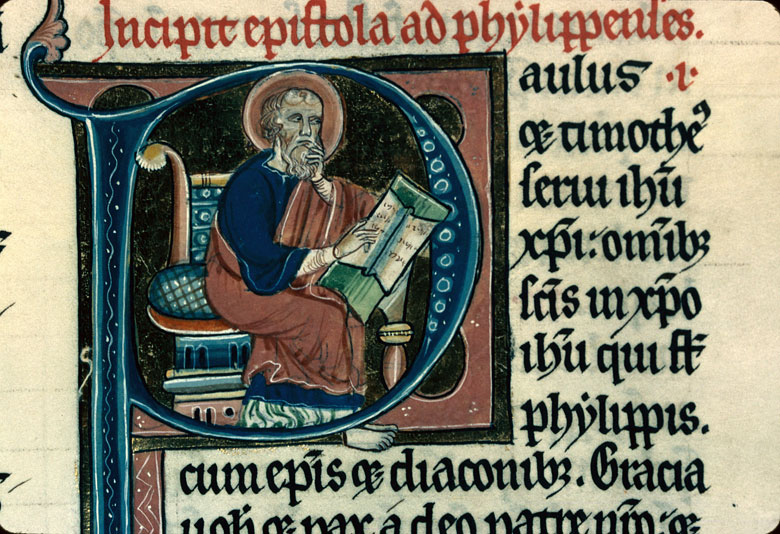 Incipit epistola ad phylippenses.
Paulus .i.
⁊ timotheꝰ
serui ihū
xp̄i: omībꝫ
sc̄is in xp̄o
ihū qui st̄
phylippis.
cum ep̄is ⁊ diaconibꝫ. Gracia
uob̄ ⁊ pax a deo patre nr̄o: ⁊